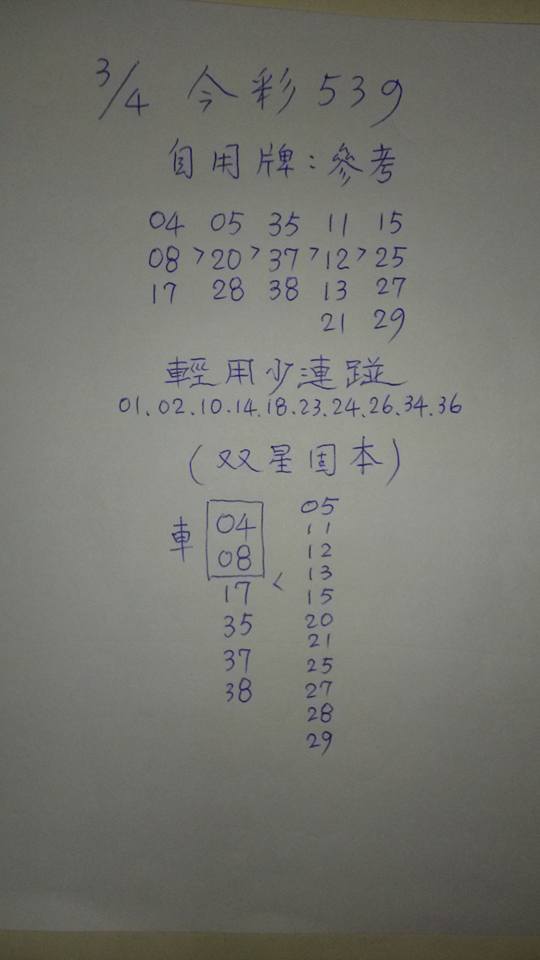 3/4 今彩539
自用牌:參考
04 05 35 11 15
08 > 20 > 37 > 12 > 25
17 28 38 13 27
21 29
輕用少連碰
01、02.10.14.18.23.24.26.34.36
(双星固本)
車
04
08
17 <
35
37
38
05
11
12
13
15
20
21
25
27
28
29